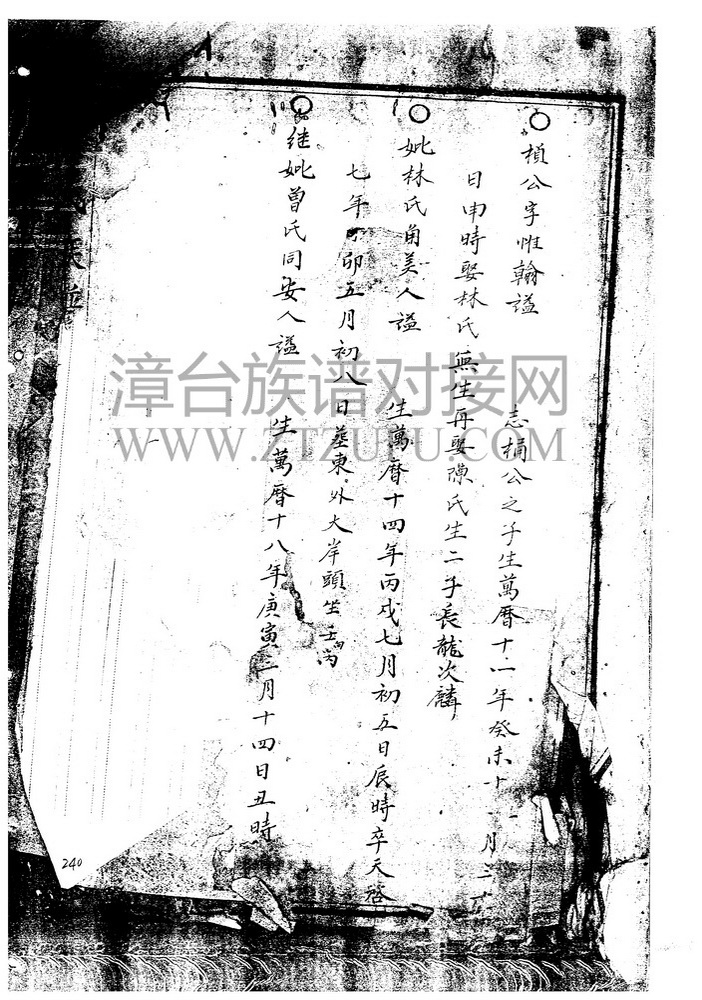 ○ 楨公字惟翰謚 志桶公之子生萬曆十一年癸未十一月二十
日申時娶林氏無生再娶陳氏生二子長龍次麟
○ 妣林氏角美人謚 生萬曆十四年丙戌七月初五日辰時卒天啓
七年丁卯五月初八日塟東 外大岸頭坐壬向丙
○ 继妣曾氏同安人謚 生萬曆十八年庚寅二月十四日丑時
漳台族谱对接网
WWW.ZTZUPU.COM
240